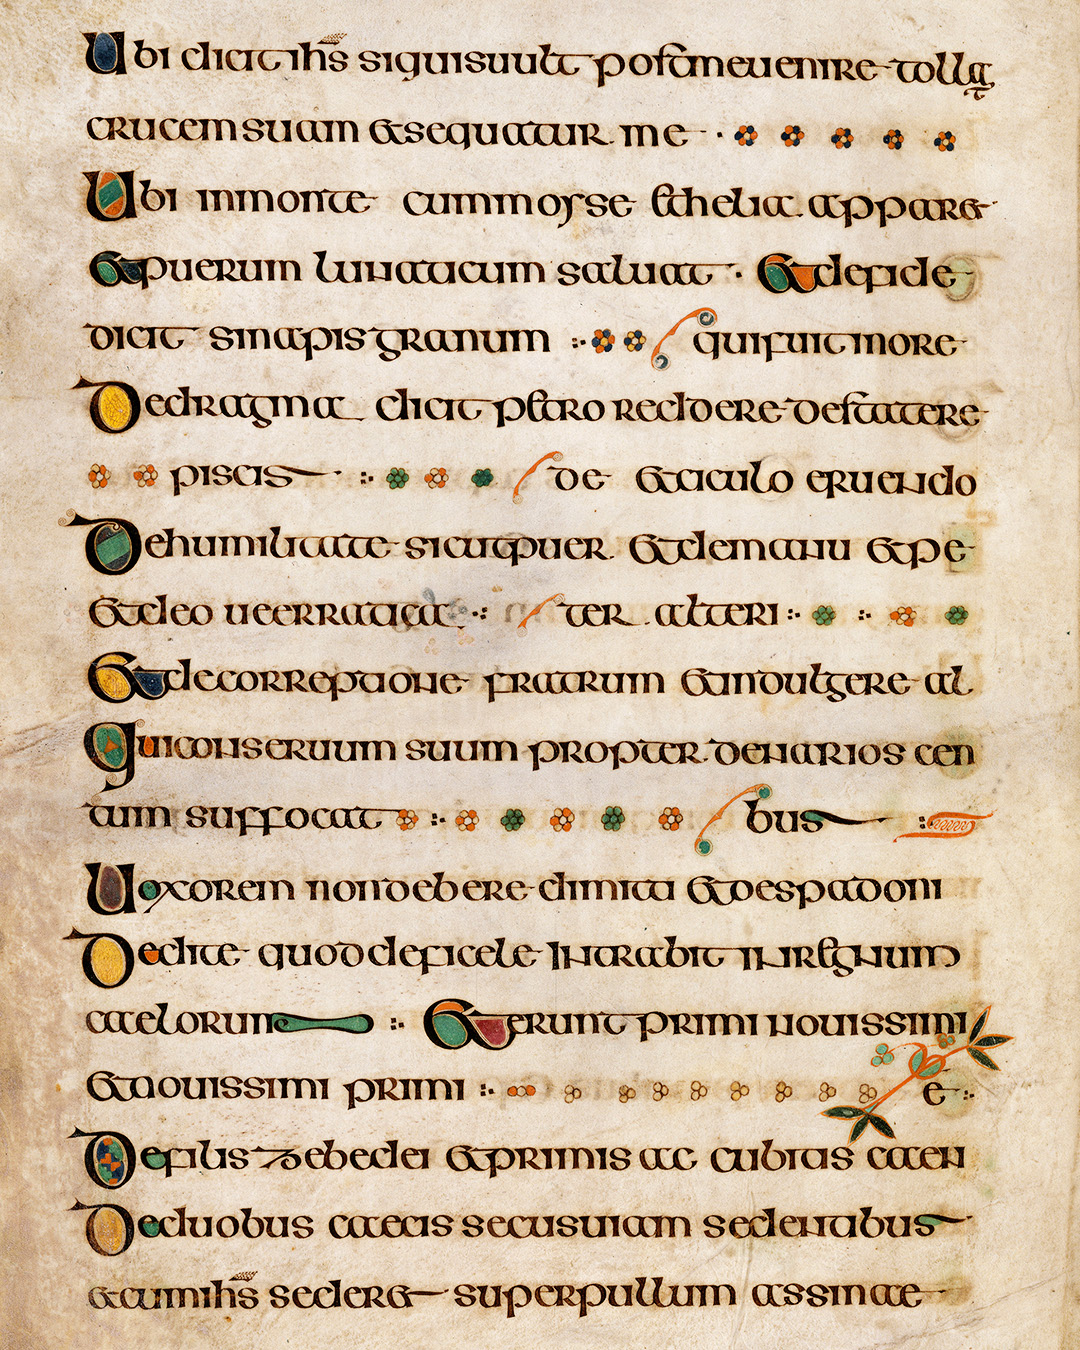 Ubi dicit ihs siquis uult post me uenire tollat
crucem suam et sequatur me
Ubi in monte cum moyse et helia apparet
et puerum lunaticum saluat Et de fide
dicit sinapis granum qui fuit in ore
De dragma dicit petro reddere de statere
piscis de et oculo eruendo
De humilitate sicut puer et de manu et pe
et de oue erratica ter alteri
Et de correptione fratrum et indulgere al
qui conseruum suum propter denarios cen
tum suffocat bus
Uxorem non debere dimitti et de spadoni
De dite quod deficele intrabit in regnum
caelorum Et erunt primi nouissimi
et nouissimi primi e
De filis zebedei et primis ac cubitis caen
De duobus caecis secus uiam sedentibus
et cum ihs sederet super pullum assinae